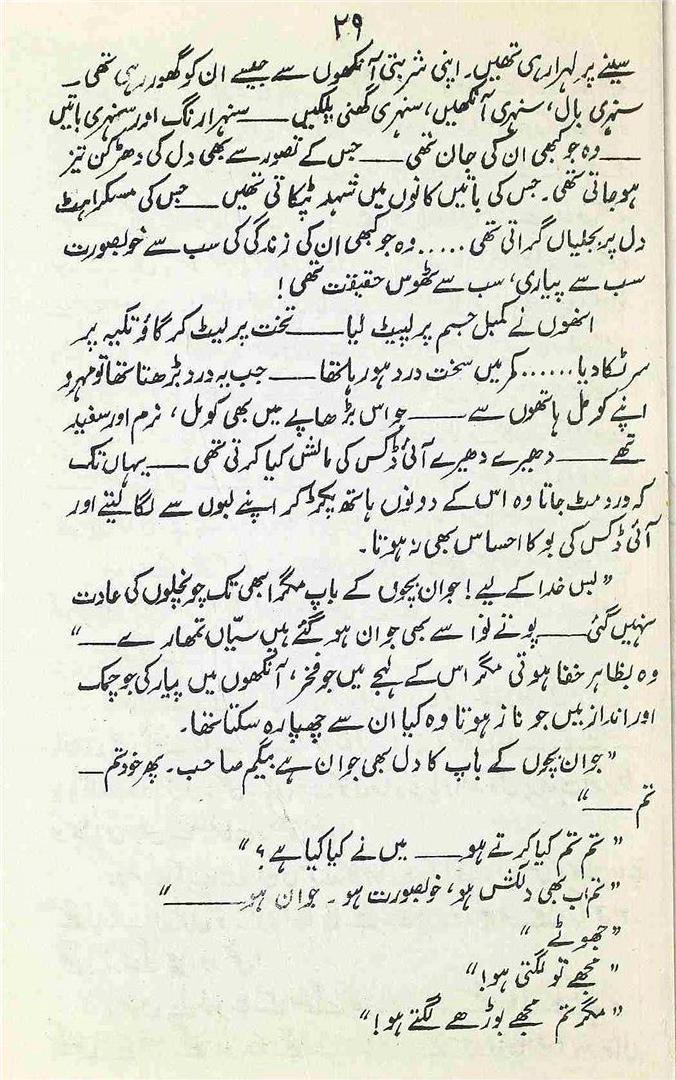 ۲۹
سینے پر لہرا رہی تھیں۔ اپنی شربتی آنکھوں سے جیسے ان کو گھور رہی تھی۔
سنہری بال، سنہری آنکھیں، سنہری گھنی پلکیں ــــ سنہرا رنگ اور سنہری باتیں
ــــ وہ جو کبھی ان کی جان تھی ــــ جس کے تصور سے بھی دل کی دھڑکن تیز
ہو جاتی تھی۔ جس کی باتیں کانوں میں شہد ٹپکاتی تھیں ــــ جس کی مسکراہٹ
دل پر بجلیاں گراتی تھی ..... وہ جو کبھی ان کی زندگی کی سب سے خوبصورت
سب سے پیاری، سب سے ٹھوس حقیقت تھی!
انھوں نے کمبل جسم پر لپیٹ لیا ــــ تخت پر لیٹ کر گاؤ تکیہ پر
سر ٹکا دیا ...... کمر میں سخت درد ہو رہا تھا ــــ جب یہ درد بڑھتا تھا تو مہرو
اپنے کومل ہاتھوں سے ــــ جو اس بڑھاپے میں بھی کومل، نرم اور سفید
تھے ــــ دھیرے دھیرے آئی ڈکس کی مالش کیا کرتی تھی ــــ یہاں تک
کہ درد مٹ جاتا وہ اس کے دونوں ہاتھ پکڑ کر اپنے لبوں سے لگا لیتے اور
آئی ڈکس کی بو کا احساس بھی نہ ہوتا۔
"بس خدا کے لیے! جوان بچوں کے باپ مگر ابھی تک چونچلوں کی عادت
نہیں گئی ــــ پوتے نواسے بھی جوان ہو گئے ہیں سیّاں تمھارے ــــ"
وہ بظاہر خفا ہوتی مگر اس کے لہجے میں جو فخر، آنکھوں میں پیار کی جو چمک
اور انداز میں جو ناز ہوتا وہ کیا ان سے چھپا رہ سکتا تھا۔
"جوان بچوں کے باپ کا دل بھی جوان ہے بیگم صاحب۔ پھر خود تم ــــ
تم ــــ"
"تم تم کیا کرتے ہو ــــ میں نے کیا کیا ہے؟"
"تم اب بھی دلکش ہو، خوبصورت ہو۔ جوان ہو ــــ"
"جھوٹے"
"مجھے تو لگتی ہو!"
"مگر تم مجھے بوڑھے لگتے ہو!"